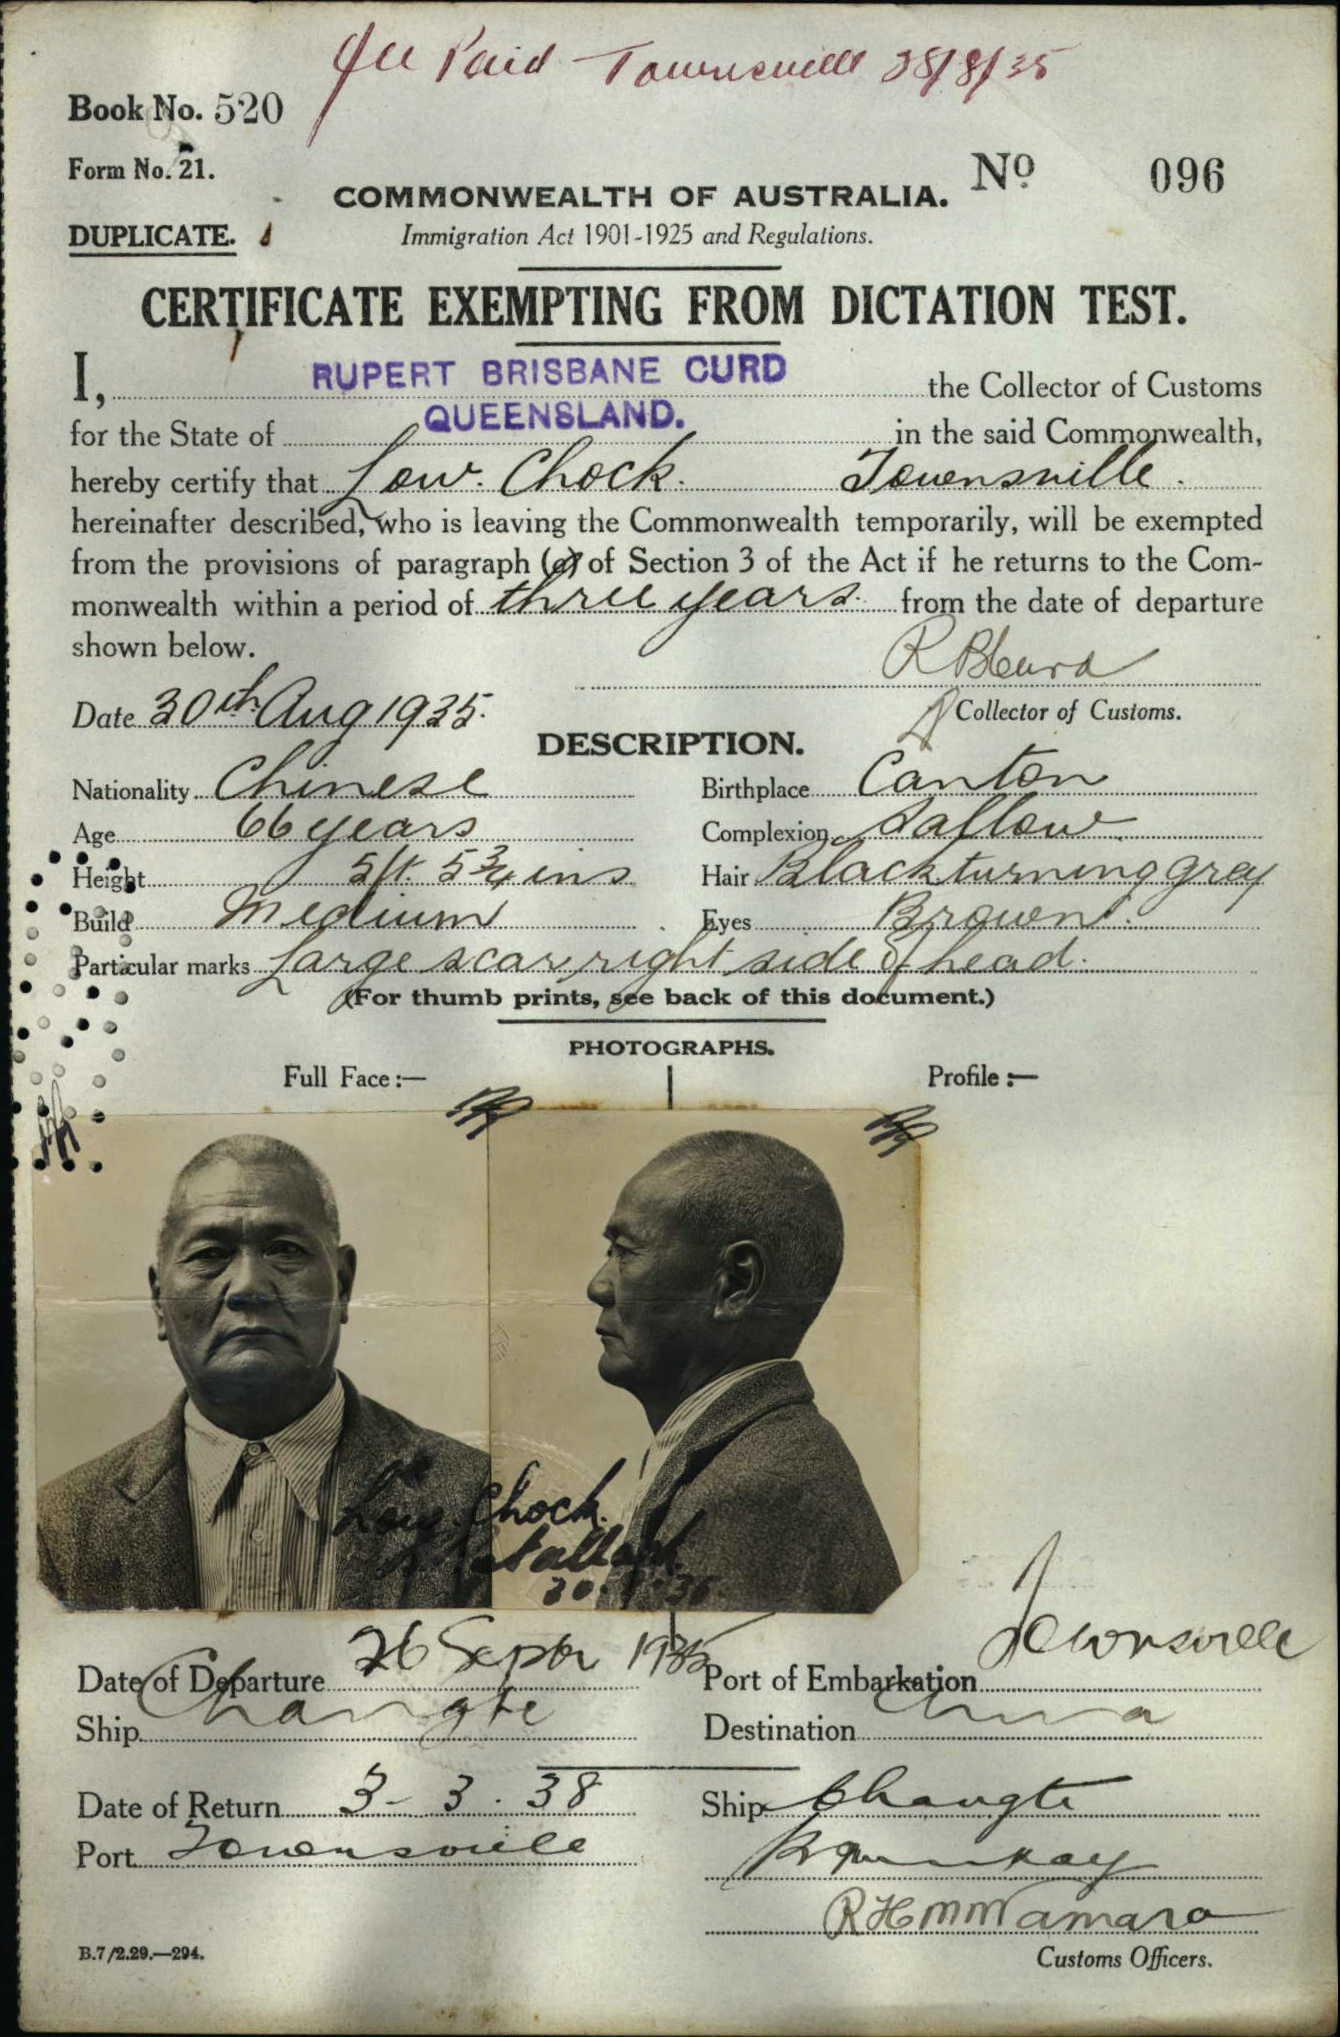 Fee Paid Townsville 28/8/35
Book No. 520
Form No. 21.
No 096
COMMONWEALTH OF AUSTRALIA.
DUPLICATE.
Immigration Act 1901-1925 and Regulations.
CERTIFICATE EXEMPTING FROM DICTATION TEST.
I, RUPERT BRISBANE CURD the Collector of Customs
for the State of QUEENSLAND. in the said Commonwealth,
hereby certify that Low. Chock. Townsville.
hereinafter described, who is leaving the Commonwealth temporarily, will be exempted
from the provisions of paragraph (a) of Section 3 of the Act if he returns to the Com-
monwealth within a period of three years. from the date of departure
shown below.
R B Curd
Date 30th Aug 1935.
Collector of Customs.
DESCRIPTION.
Nationality Chinese Birthplace Canton
Age 66 years Complexion Sallow
Height 5ft. 5 3/4 ins Hair Black turning grey
Build Medium Eyes Brown.
Particular marks Large scar right side of head.
(For thumb prints, see back of this document.)
PHOTOGRAPHS.
Full Face:— Profile:—
Low. Chock.
Date of Departure 26 Septbr 1935 Port of Embarkation Townsville
Ship Changte Destination China
Date of Return 3-3.38 Ship Changte
Port Townsville
Customs Officers.
B.7/2.29.—294.